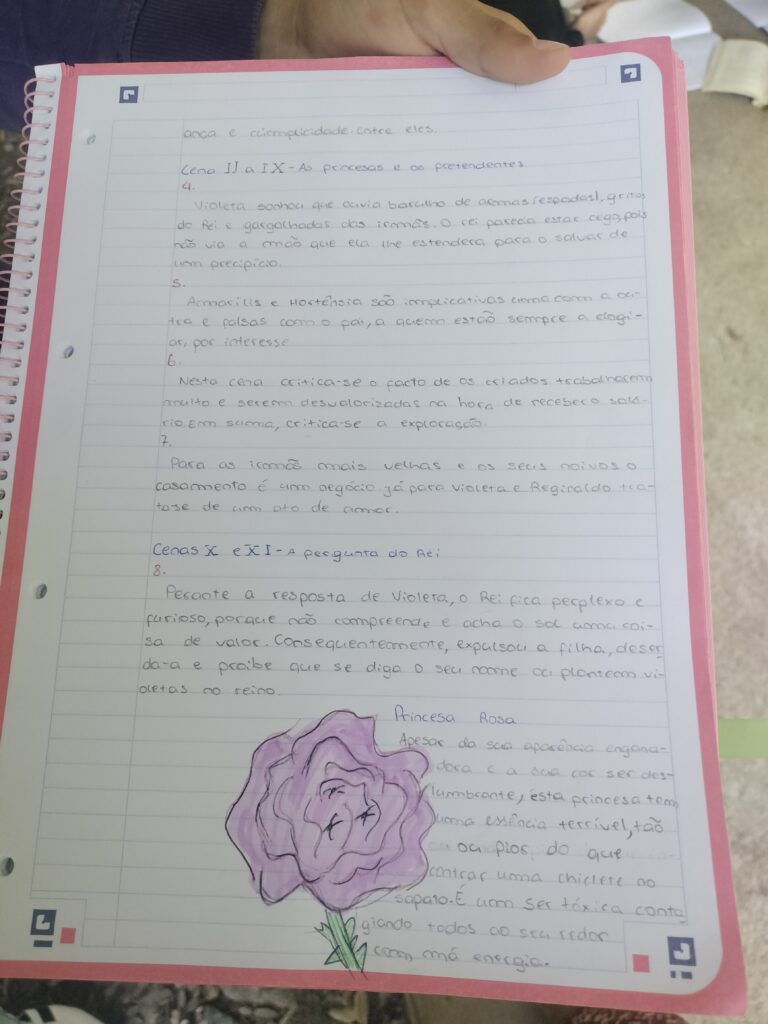 ança e cumplicidade entre eles.
Cena II a IX - As princesas e os pretendentes
4.
Violeta sonhou que ouvia barulho de armas (espadas), gritos
do Rei e gargalhadas das irmãs. O rei parecia estar cego, pois
não via a mão que ela lhe estendera para o salvar de
um precipício.
5.
Amarílis e Hortênsia são implicativas uma com a ou-
tra e falsas com o pai, a quem estão sempre a elogi-
ar, por interesse
6.
Nesta cena critica-se o facto de os criados trabalharem
muito e serem desvalorizadas na hora de receber o salá-
rio. Em suma, critica-se a exploração.
7.
Para as irmãs mais velhas e os seus noivos o
casamento é um negócio já para Violeta e Reginaldo tra-
ta-se de um ato de amor.
Cenas X e XI - A pergunta do Rei
8.
Perante a resposta de Violeta, o Rei fica perplexo e
furioso, porque não compreende e acha o sal uma coi-
sa de valor. Consequentemente, expulsou a filha, deser
da-a e proibe que se diga o seu nome ou plantem vi-
oletas no reino.
Princesa Rosa
Apesar da sua aparência engana-
dora e a sua cor ser des-
lumbrante, esta princesa tem
uma essência terrível, tão
ou pior, do que
contrar uma chiclete no
sapato. É um ser tóxica conta
giando todos ao seu redor
com má energia.